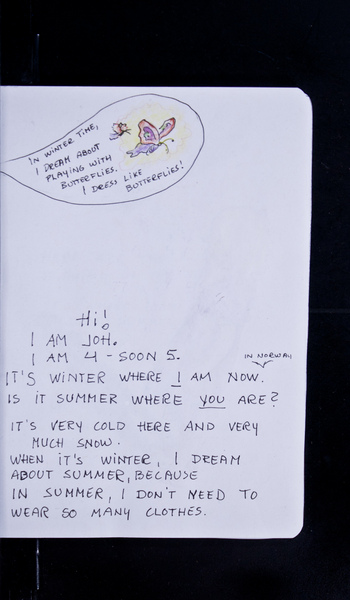 IN WINTER TIME,
I DREAM ABOUT
PLAYING WITH
BUTTERFLIES.
I DRESS LIKE
BUTTERFLIES!
Hi!
I AM JOH.
I AM 4 - SOON 5.
IN NORWAY
IT'S WINTER WHERE I AM NOW.
IS IT SUMMER WHERE YOU ARE?
IT'S VERY COLD HERE AND VERY
MUCH SNOW.
WHEN IT'S WINTER, I DREAM
ABOUT SUMMER, BECAUSE
IN SUMMER, I DON'T NEED TO
WEAR SO MANY CLOTHES.